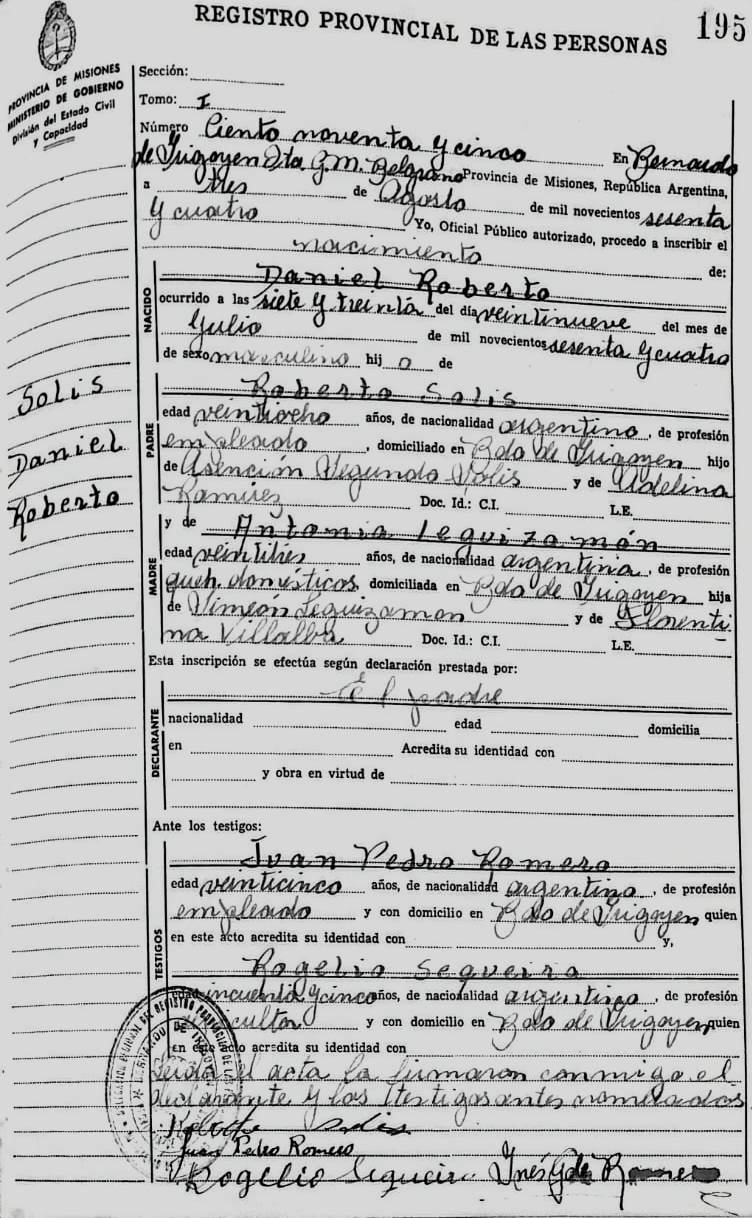 REGISTRO PROVINCIAL DE LAS PERSONAS
195
PROVINCIA DE MISIONES
MINISTERIO DE GOBIERNO
División del Estado Civil
y Capacidad
Sección:
Tomo: I
Número Ciento noventa y cinco En Bernardo
de Irigoyen Dto. G.M. Belgrano Provincia de Misiones, República Argentina,
a tres de Agosto de mil novecientos sesenta
y cuatro Yo, Oficial Público autorizado, procedo a inscribir el
nacimiento de:
NACIDO
Daniel Roberto
ocurrido a las siete y treinta del día veintinueve del mes de
Julio de mil novecientos sesenta y cuatro
de sexo masculino hij o de
Solis
Daniel
Roberto
PADRE
Roberto Solis
edad veintiocho años, de nacionalidad argentino, de profesión
empleado, domiciliado en Bdo de Irigoyen hijo
de Asención Segundo Solis y de Adelina
Ramirez Doc. Id.: C.I. L.E.
MADRE
y de Antonia Leguizamón
edad veintitres años, de nacionalidad argentina, de profesión
queh. domésticos, domiciliada en Bdo de Irigoyen hija
de Simeón Leguizamon y de Florenti
na Villalba Doc. Id.: C.I. L.E.
Esta inscripción se efectúa según declaración prestada por:
DECLARANTE
El padre
nacionalidad edad domicilia
en Acredita su identidad con
y obra en virtud de
Ante los testigos:
TESTIGOS
Juan Pedro Romero
edad veinticinco años, de nacionalidad argentino, de profesión
empleado y con domicilio en Bdo de Irigoyen quien
en este acto acredita su identidad con y,
Rogelio Sequeira
edad cincuenta y cinco años, de nacionalidad argentino, de profesión
y con domicilio en Bdo de Irigoyen quien
en este acto acredita su identidad con
Leida el acta la firmaron conmigo el
declarante y los testigos antes nombrados
Roberto Solis
Juan Pedro Romero
Rogelio Sequeira Inés G. de Romero